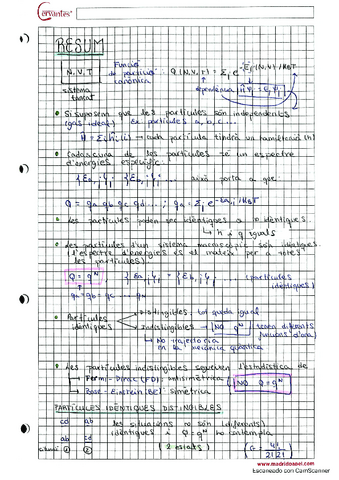 Cervantes
RESUM
N, V, T
Funció
de partició
canònica
: Q (N, V, T) = Σ e^-Ej(N,V)/KBT
sistema
tancat
dependència
• Si suposem que les partícules són independents
(gas ideal). Ex partícules a, b, c...
H = Σi ĥi (i) → cada partícula tindrà un hamiltonià (h)
• Cadascuna de les partícules té un espectre
d'energies específic:
això porta a que:
Q = qa qb qc qd ...
• Les partícules poden ser idèntiques o no idèntiques.
↳ h i q iguals
• Les partícules d'un sistema macroscòpic són idèntiques
(l'espectre d'energies és el mateix per a totes
les partícules)
Q = q^N
(partícules
idèntiques)
qa = qb = qc ... q
• Partícules
idèntiques
Distingibles: tot queda igual
Indistingibles → NO q^N
↳ NO trajectòria
en la mecànica quàntica
• Les partícules indistingibles segueixen l'estadística de
→ Fermi-Dirac (FD): antisimètrica
NO Q = q^N
→ Bose-Einstein (BE): simètrica
PARTÍCULES IDÈNTIQUES DISTINGIBLES
cd ab
ab cd
les situacions no són (diferents)
idèntiques i Q = q^N ho contempla
① ②
(2 estats)
(G = 4!/2!2!
www.madridpapel.com
Escaneado con CamScanner